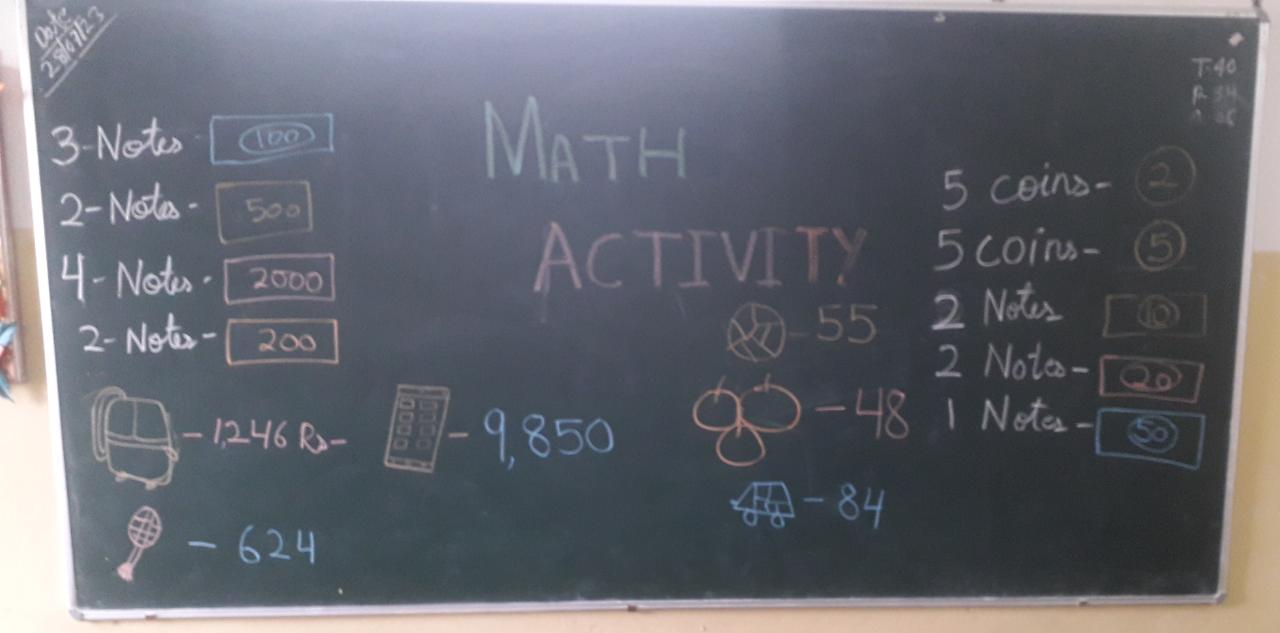 Date
28/07/23
T-40
P-34
MATH
ACTIVITY
3-Notes - 100
2-Notes - 500
4-Notes - 2000
2-Notes - 200
- 1,246 Rs-
- 9,850
- 624
5 coins- 2
5 coins- 5
2 Notes 10
2 Notes- 20
1 Notes- 50
- 55
- 48
- 84